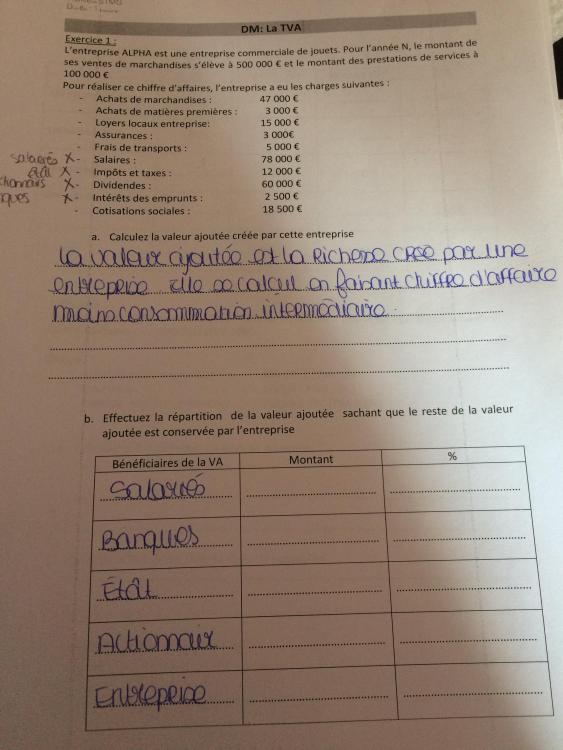 DM: La TVA
Exercice 1 :
L'entreprise ALPHA est une entreprise commerciale de jouets. Pour l'année N, le montant de
ses ventes de marchandises s'élève à 500 000 € et le montant des prestations de services à
100 000 €
Pour réaliser ce chiffre d'affaires, l'entreprise a eu les charges suivantes :
- Achats de marchandises : 47 000 €
- Achats de matières premières : 3 000 €
- Loyers locaux entreprise: 15 000 €
- Assurances : 3 000€
- Frais de transports : 5 000 €
salariés X - Salaires : 78 000 €
état X - Impôts et taxes : 12 000 €
X - Dividendes : 60 000 €
X - Intérêts des emprunts : 2 500 €
- Cotisations sociales : 18 500 €
a. Calculez la valeur ajoutée créée par cette entreprise
la valeur ajoutée est la Richesse créé par une
entreprise Elle se calcul en faisant chiffre d'affaire
moins consommation intermédiaire.
b. Effectuez la répartition de la valeur ajoutée sachant que le reste de la valeur
ajoutée est conservée par l'entreprise
Bénéficiaires de la VA Montant %
Salariés
Banques
État
Actionnair
Entreprise